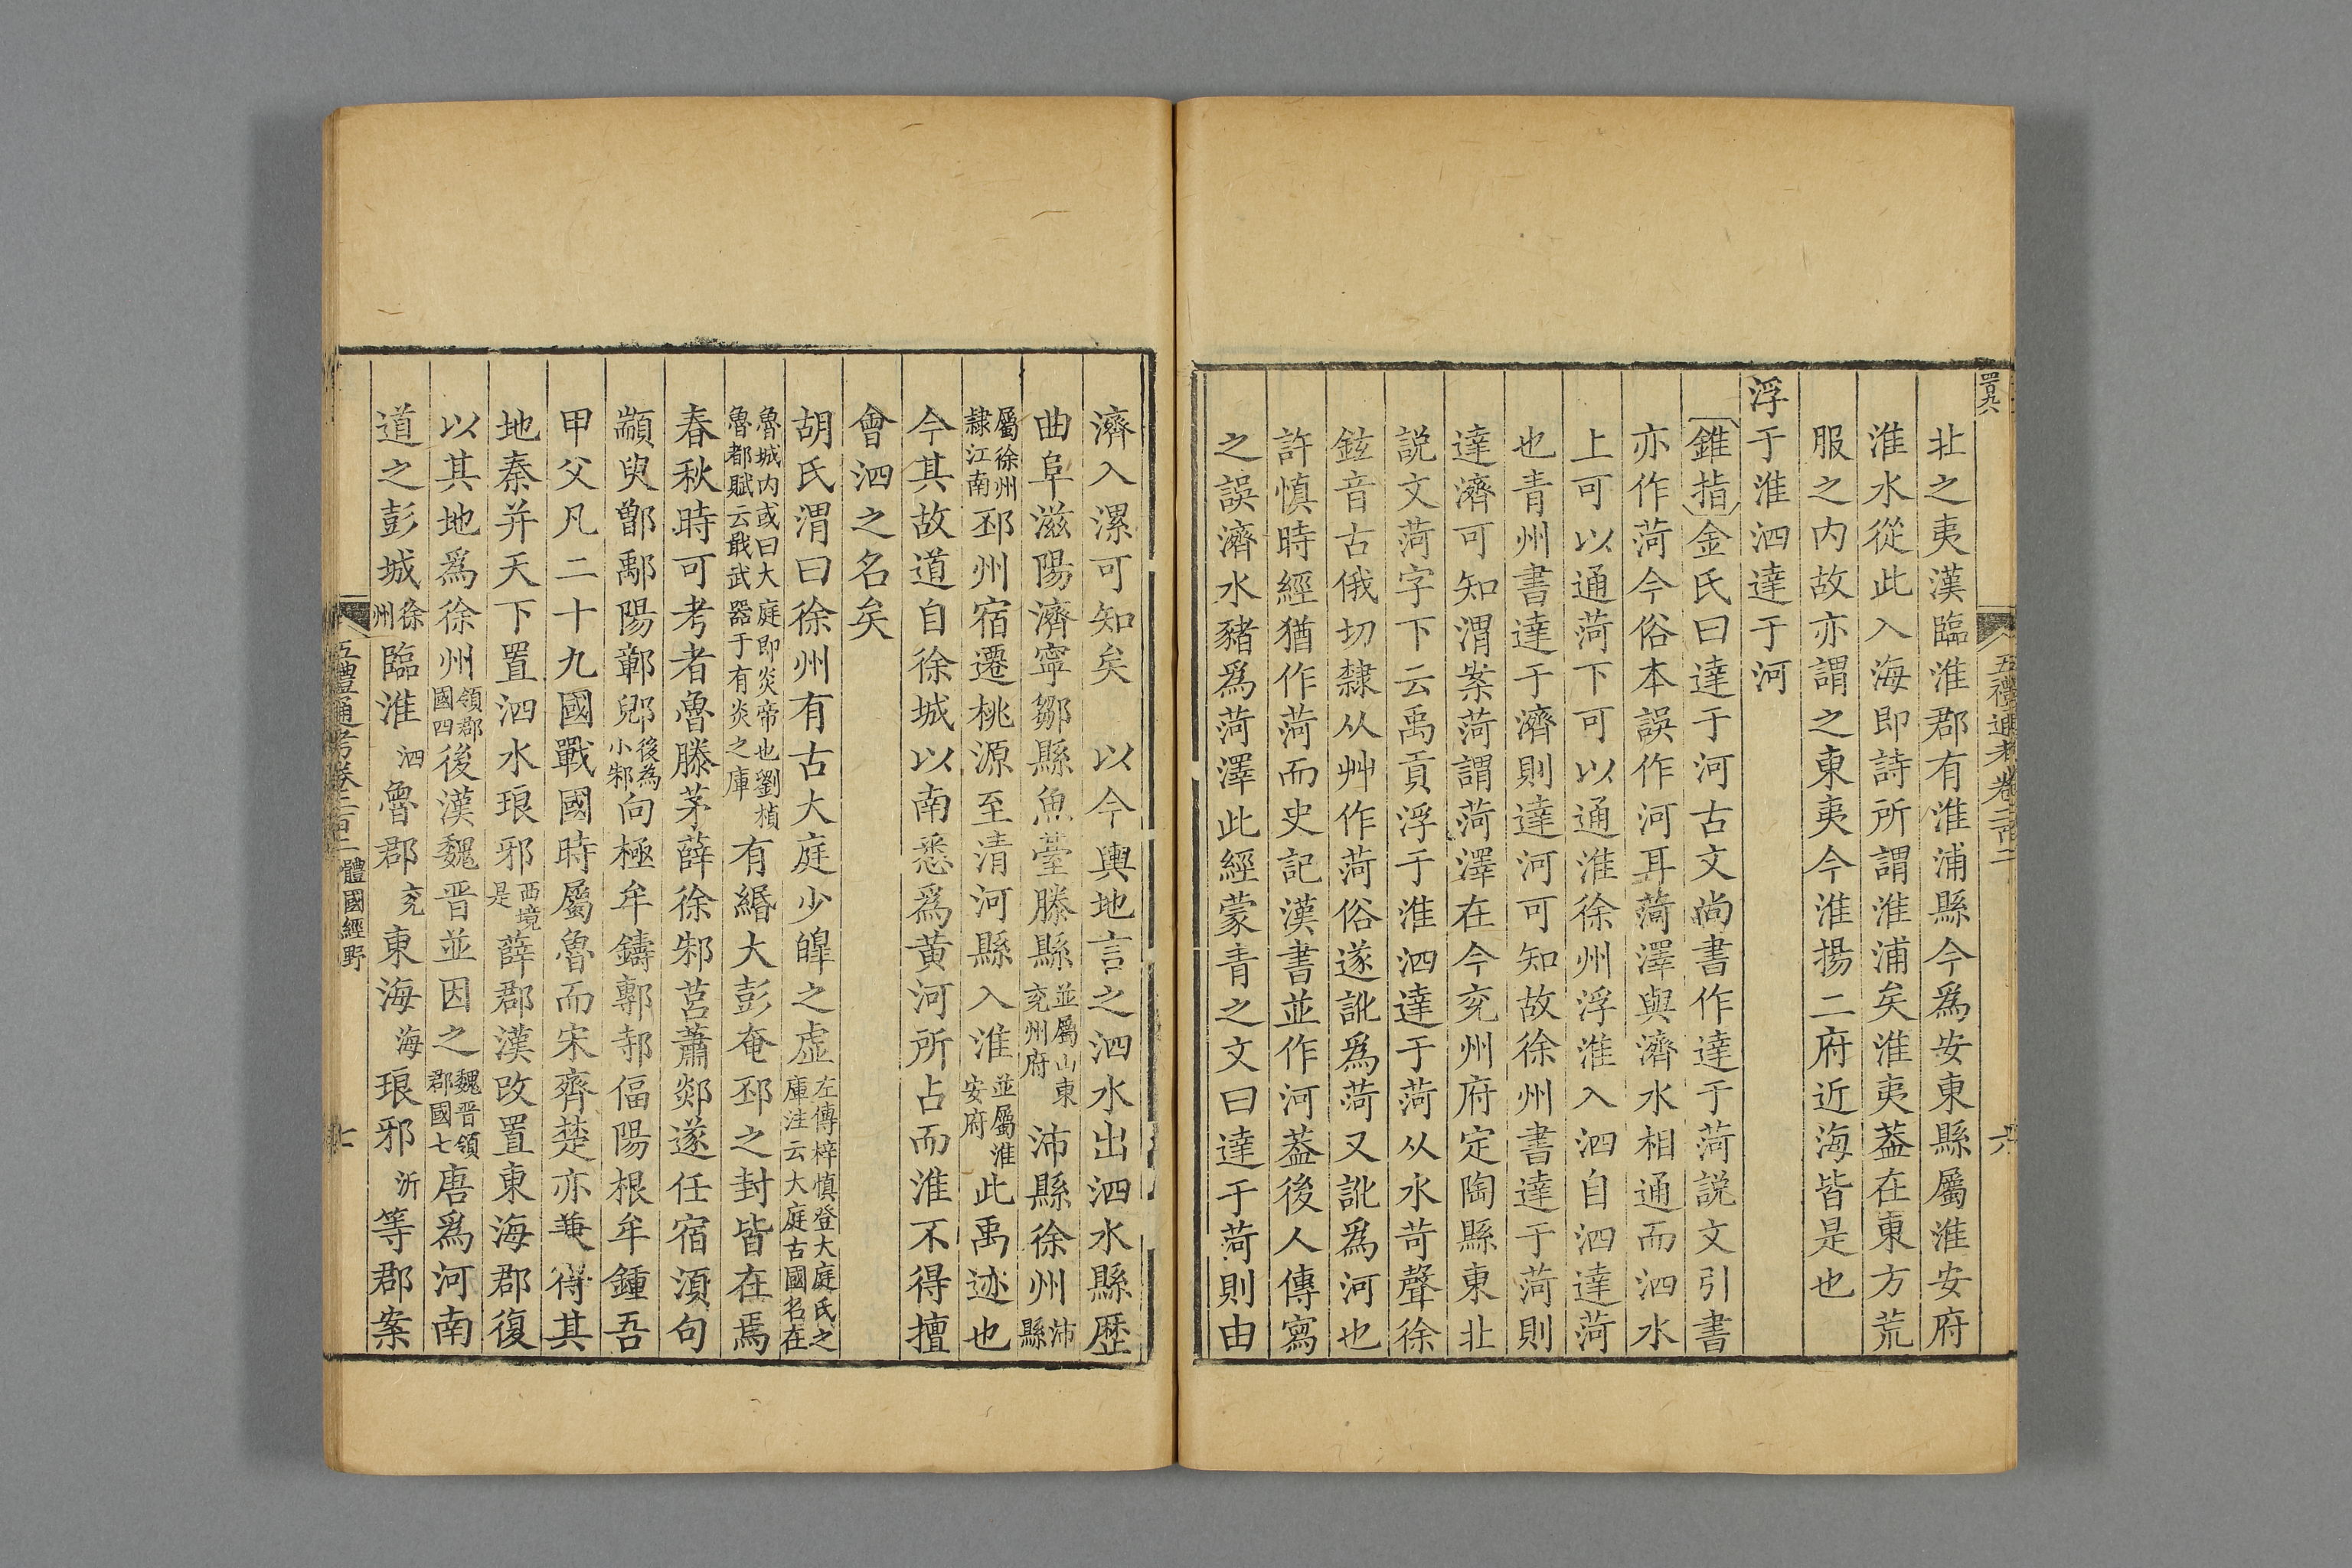 五禮通考卷二百二
六
北之夷漢臨淮郡有淮浦縣今爲安東縣屬淮安府
淮水從此入海即詩所謂淮浦矣淮夷葢在東方荒
服之内故亦謂之東夷今淮揚二府近海皆是也
浮于淮泗達于河
錐指金氏曰達于河古文尚書作達于菏説文引書
亦作菏今俗本誤作河耳菏澤與濟水相通而泗水
上可以通菏下可以通淮徐州浮淮入泗自泗達菏
也青州書達于濟則達河可知故徐州書達于菏則
達濟可知渭案菏謂菏澤在今兖州府定陶縣東北
説文菏字下云禹貢浮于淮泗達于菏从水苛聲徐
鉉音古俄切隸从艸作菏俗遂訛爲菏又訛爲河也
許慎時經猶作菏而史記漢書並作河葢後人傳寫
之誤濟水豬爲菏澤此經蒙青之文曰達于菏則由
濟入漯可知矣　以今輿地言之泗水出泗水縣歷
曲阜滋陽濟寧鄒縣魚臺滕縣並屬山東兖州府沛縣徐州沛縣
屬徐州隸江南邳州宿遷桃源至清河縣入淮並屬淮安府此禹迹也
今其故道自徐城以南悉爲黄河所占而淮不得擅
會泗之名矣
胡氏渭曰徐州有古大庭少皥之虛左傳梓慎登大庭氏之庫注云大庭古國名在
魯城内或曰大庭即炎帝也劉楨魯都賦云戢武器于有炎之庫有緡大彭奄邳之封皆在焉
春秋時可考者魯滕茅薛徐邾莒蕭郯遂任宿須句
顓臾鄫鄅陽鄣郳後為小邾向極牟鑄鄟邿偪陽根牟鍾吾
甲父凡二十九國戰國時屬魯而宋齊楚亦兼得其
地秦并天下置泗水琅邪西境是薛郡漢改置東海郡復
以其地爲徐州領郡國四後漢魏晋並因之魏晋領郡國七唐爲河南
道之彭城徐州臨淮泗魯郡兖東海海琅邪沂等郡案
五禮通考卷二百二　體國經野
七